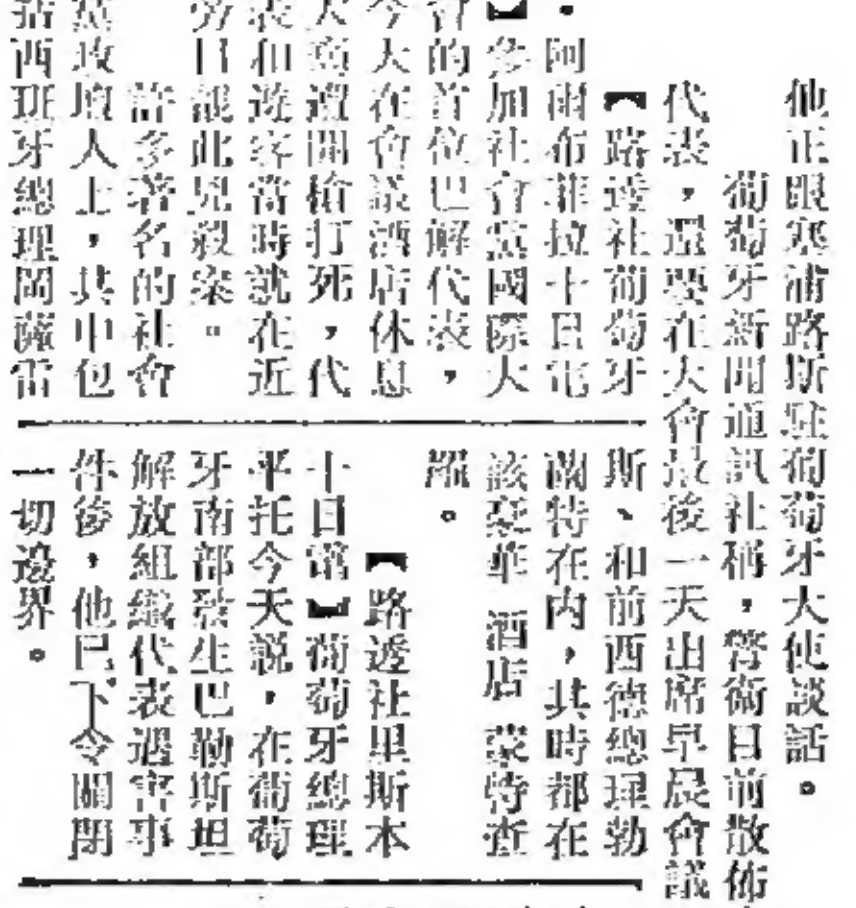 他正眼塞浦路斯駐葡萄牙大使談話。
葡萄牙新聞通訊社稱，警衛目前散佈
代表，還要在大會最後一天出席早晨會議
【路透社葡萄牙
·阿爾布菲拉十日電
】參加社會黨國際大
會的首位巴解代表，
今天在會議酒店休息
大商遭開槍打死，代
表和遊客當時就在近
旁目覩此兇殺案。
許多著名的社會
黨政壇人士，其中包
括西班牙總理岡薩雷
斯、和前西德總理勃
蘭特在內，其時都在
該豪華酒店蒙特查
羅。
【路透社里斯本
十日電】葡萄牙總理
平托今天說，在葡萄
牙南部發生巴勒斯坦
解放組織代表遇害事
件後，他已下令關閉
一切邊界。